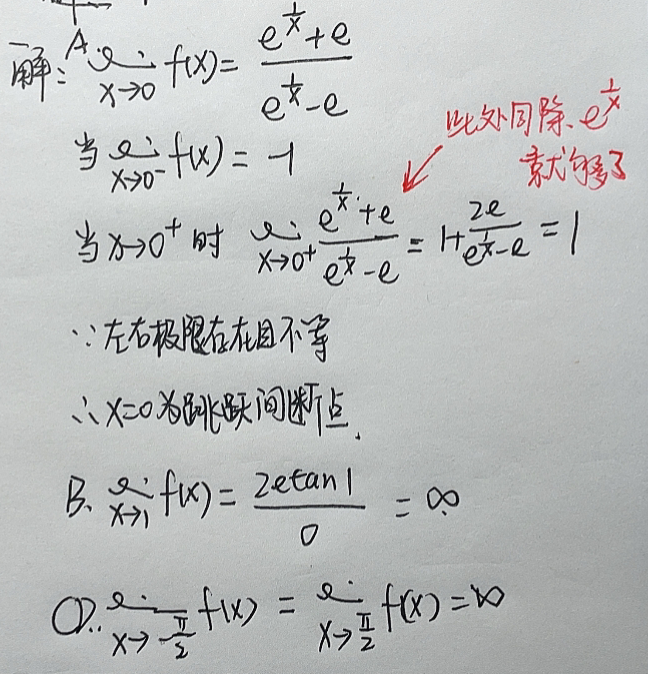 解: A. lim x→0 f(x) = (e^(1/x)+e)/(e^(1/x)-e)
此处同除 e^(1/x)
就够了
当 lim x→0⁻ f(x) = -1
当 x→0⁺ 时 lim x→0⁺ (e^(1/x)+e)/(e^(1/x)-e) = 1+2e/(e^(1/x)-e) = 1
∵左右极限存在且不等
∴x=0为跳跃间断点.
B. lim x→1 f(x) = 2etan1/0 = ∞
CD. lim x→-π/2 f(x) = lim x→π/2 f(x) = ∞